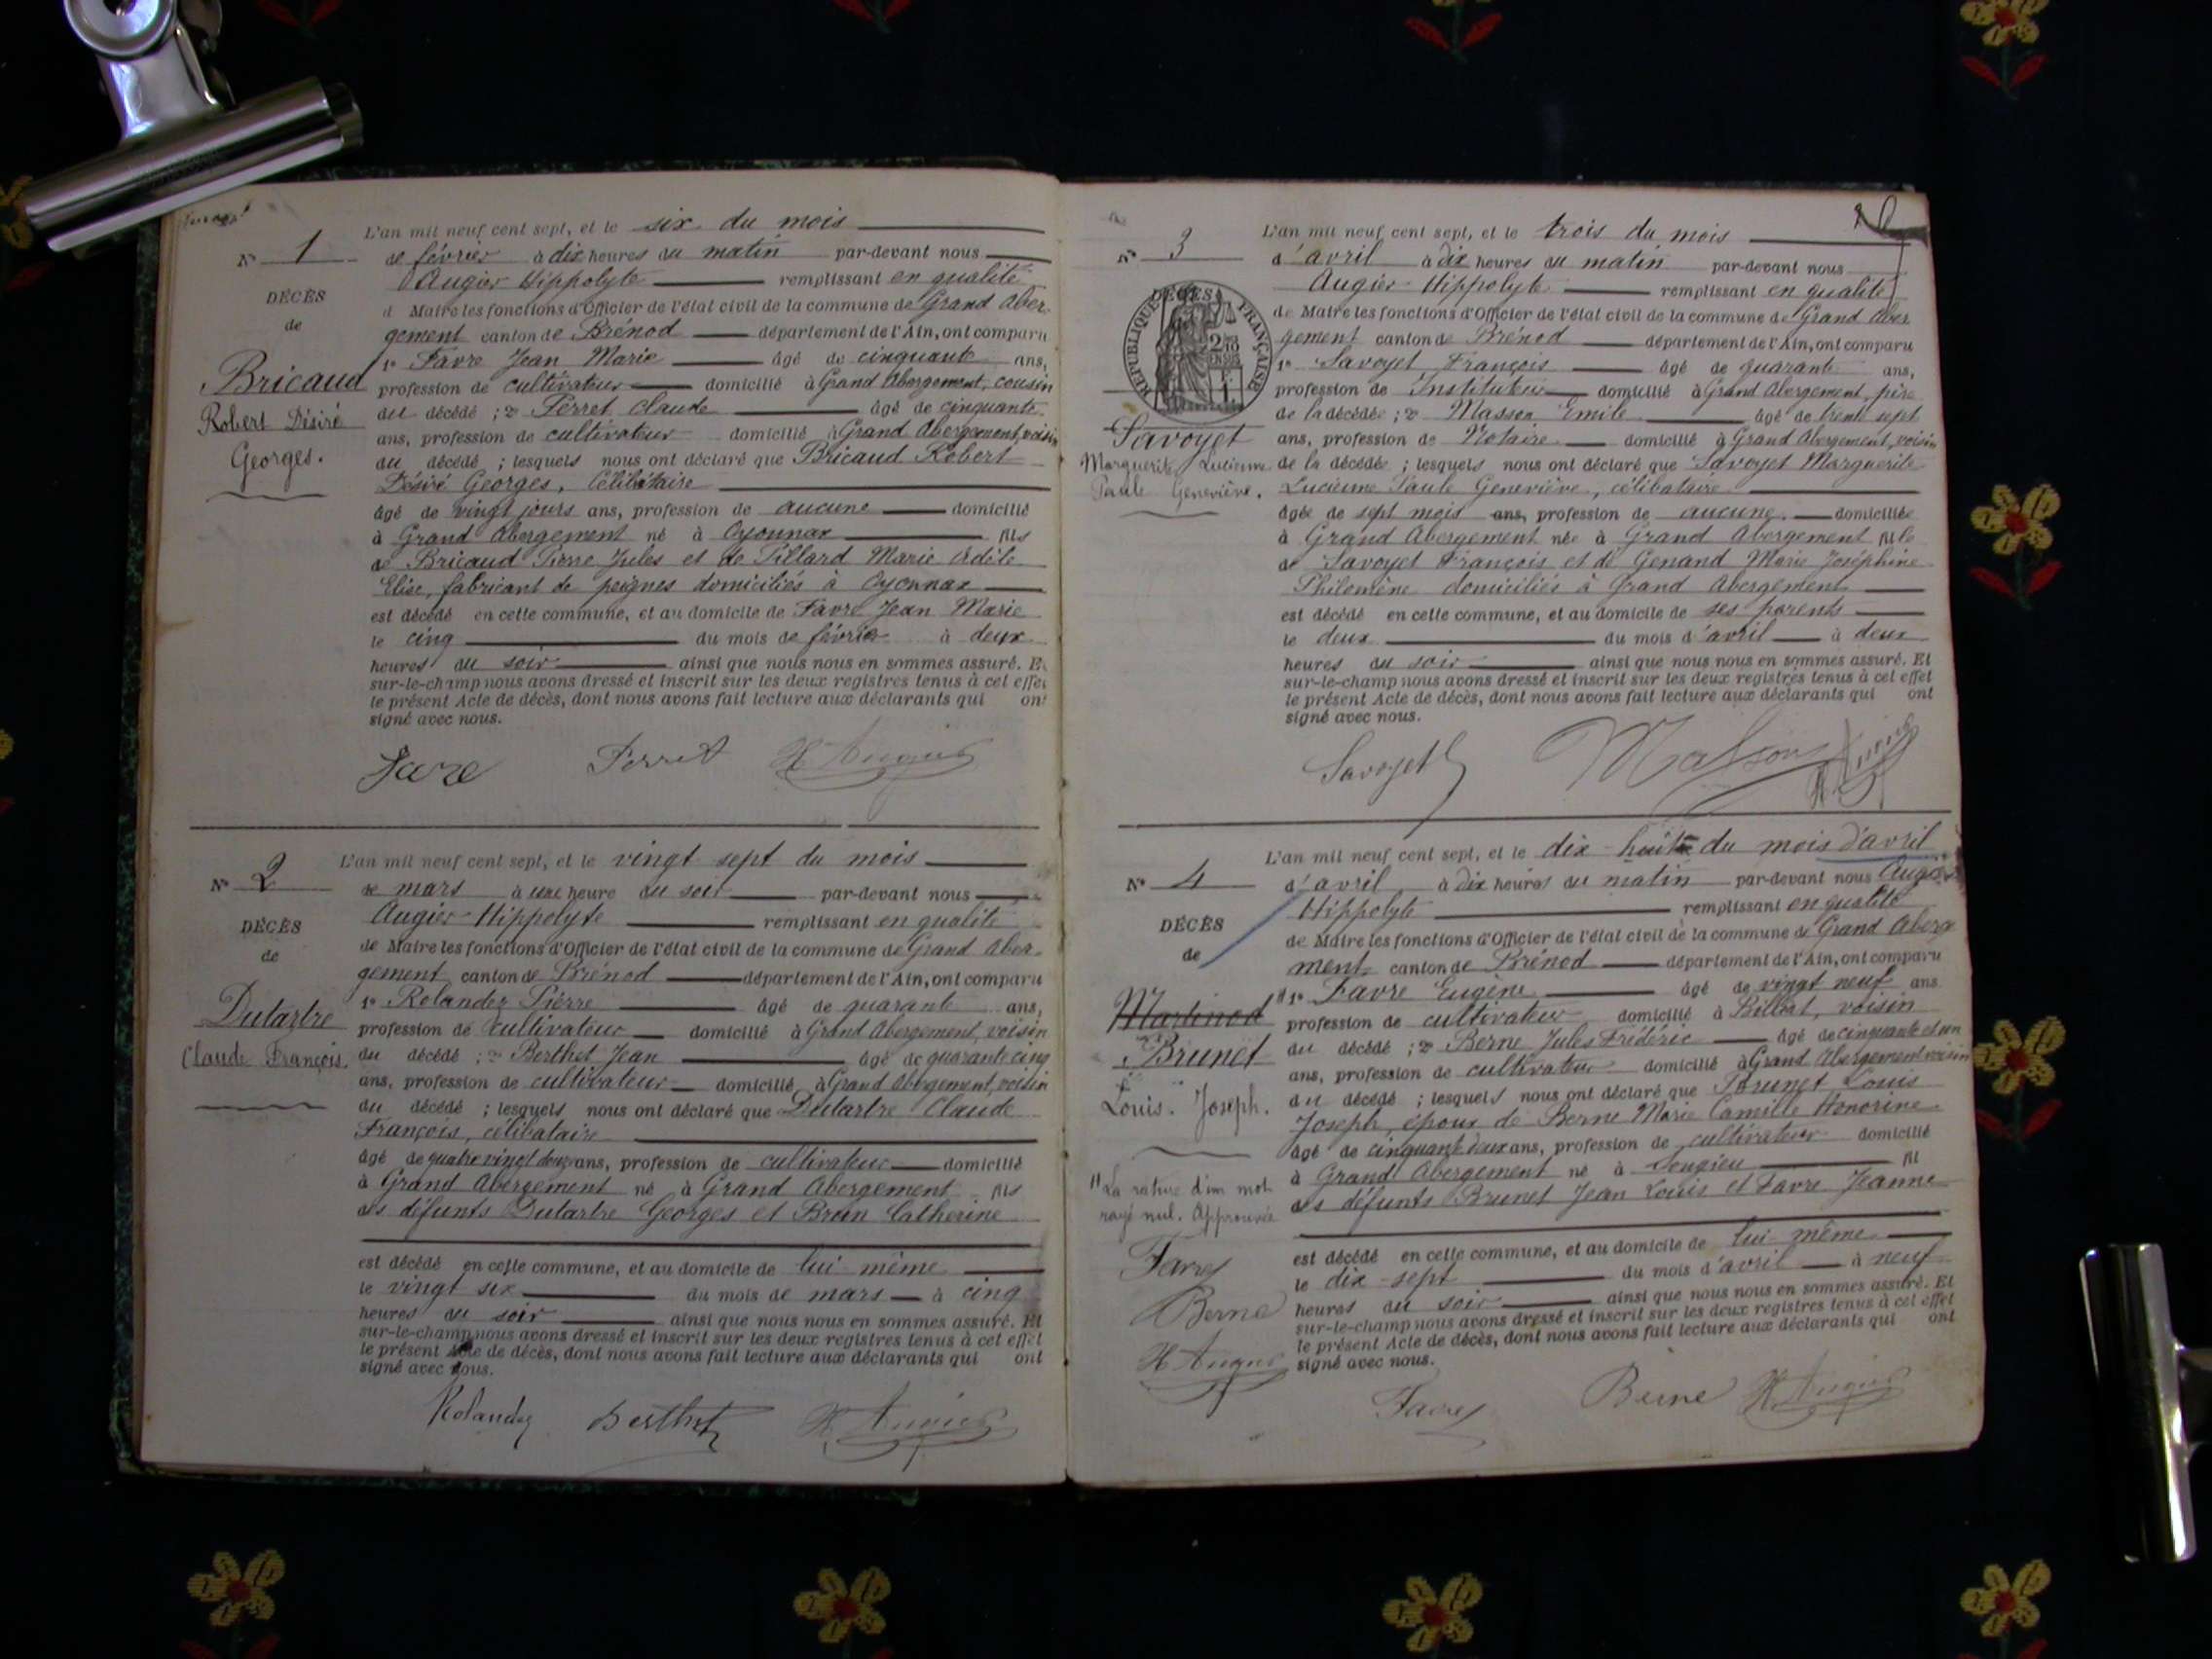 L'an mil neuf cent sept, et le six du mois
N° 1
de février à dix heures du matin par-devant nous
Augier Hippolyte remplissant en qualité
DÉCÈS
d Maire les fonctions d'Officier de l'état civil de la commune de Grand Aber-
de
gement canton de Brénod département de l'Ain, ont comparu
1° Favre Jean Marie âgé de cinquante ans,
Bricaud
profession de cultivateur domicilié à Grand Abergement, cousin
Robert Désiré
du décédé ; 2° Perret Claude âgé de cinquante
ans, profession de cultivateur domicilié à Grand Abergement, voisin
Georges.
du décédé ; lesquels nous ont déclaré que Bricaud Robert
Désiré Georges, Célibataire
âgé de vingt jours ans, profession de aucune domicilié
à Grand Abergement né à Oyonnax fils
de Bricaud Pierre Jules et de Tillard Marie Adèle
Elise, fabricant de peignes domiciliés à Oyonnax
est décédé en cette commune, et au domicile de Favre Jean Marie
le cinq du mois de février à deux
heures du soir ainsi que nous nous en sommes assuré. Et
sur-le-champ nous avons dressé et inscrit sur les deux registres tenus à cet effet
le présent Acte de décès, dont nous avons fait lecture aux déclarants qui ont
signé avec nous.
Favre Perret H Augier
L'an mil neuf cent sept, et le vingt sept du mois
N° 2
de mars à une heure du soir par-devant nous
Augier Hippolyte remplissant en qualité
DÉCÈS
de Maire les fonctions d'Officier de l'état civil de la commune de Grand Aber-
de
gement canton de Brénod département de l'Ain, ont comparu
1° Rolandez Pierre âgé de quarante ans,
Dutartre
profession de cultivateur domicilié à Grand Abergement, voisin
Claude François.
du décédé ; 2° Berthet Jean âgé de quarante cinq
ans, profession de cultivateur domicilié à Grand Abergement, voisin
du décédé ; lesquels nous ont déclaré que Dutartre Claude
François, célibataire
âgé de quatre vingt douze ans, profession de cultivateur domicilié
à Grand Abergement né à Grand Abergement fils
des défunts Dutartre Georges et Brun Catherine
est décédé en cette commune, et au domicile de lui même
le vingt six du mois de mars à cinq
heures du soir ainsi que nous nous en sommes assuré. Et
sur-le-champ nous avons dressé et inscrit sur les deux registres tenus à cet effet
le présent Acte de décès, dont nous avons fait lecture aux déclarants qui ont
signé avec nous.
Rolandez Berthet H Augier
L'an mil neuf cent sept, et le trois du mois
N° 3
d'avril à dix heures du matin par-devant nous
Augier Hippolyte remplissant en qualité
DÉCÈS
RÉPUBLIQUE FRANÇAISE
de Maire les fonctions d'Officier de l'état civil de la commune de Grand Aber
gement canton de Brénod département de l'Ain, ont comparu
1° Savoyet François âgé de quarante ans,
profession de Instituteur domicilié à Grand Abergement, père
de la décédée ; 2° Masson Emile âgé de trente sept
Savoyet
ans, profession de Notaire domicilié à Grand Abergement, voisin
Marguerite Lucienne
de la décédée ; lesquels nous ont déclaré que Savoyet Marguerite
Paule Geneviève.
Lucienne Paule Geneviève, célibataire
âgée de sept mois ans, profession de aucune. domiciliée
à Grand Abergement née à Grand Abergement fille
de Savoyet François et de Genand Marie Joséphine
Philomène domiciliés à Grand Abergement
est décédé en cette commune, et au domicile de ses parents
le deux du mois d'avril à deux
heures du soir ainsi que nous nous en sommes assuré. Et
sur-le-champ nous avons dressé et inscrit sur les deux registres tenus à cet effet
le présent Acte de décès, dont nous avons fait lecture aux déclarants qui ont
signé avec nous.
Savoyet Masson
L'an mil neuf cent sept, et le dix-huit du mois d'avril
N° 4
d'avril à dix heures du matin par-devant nous Augier
Hippolyte remplissant en qualité
DÉCÈS
de Maire les fonctions d'Officier de l'état civil de la commune de Grand Aberge
de
ment canton de Brénod département de l'Ain, ont comparu
1° Favre Eugène âgé de vingt neuf ans
Martinod
profession de cultivateur domicilié à Billiat, voisin
Brunet
du décédé ; 2° Berne Jules Frédéric âgé de cinquante et un
ans, profession de cultivateur domicilié à Grand Abergement voisin
Louis. Joseph.
du décédé ; lesquels nous ont déclaré que Brunet Louis
Joseph, époux de Berne Marie Camille Honorine
âgé de cinquante deux ans, profession de cultivateur domicilié
à Grand Abergement né à Songieu fil
des défunts Brunet Jean Louis et Favre Jeanne
La rature d'un mot
rayé nul. Approuvée
est décédé en cette commune, et au domicile de lui même
Favre
le dix-sept du mois d'avril à neuf
Berne
heures du soir ainsi que nous nous en sommes assuré. Et
sur-le-champ nous avons dressé et inscrit sur les deux registres tenus à cet effet
le présent Acte de décès, dont nous avons fait lecture aux déclarants qui ont
H Augier
signé avec nous.
Favre Berne H Augier